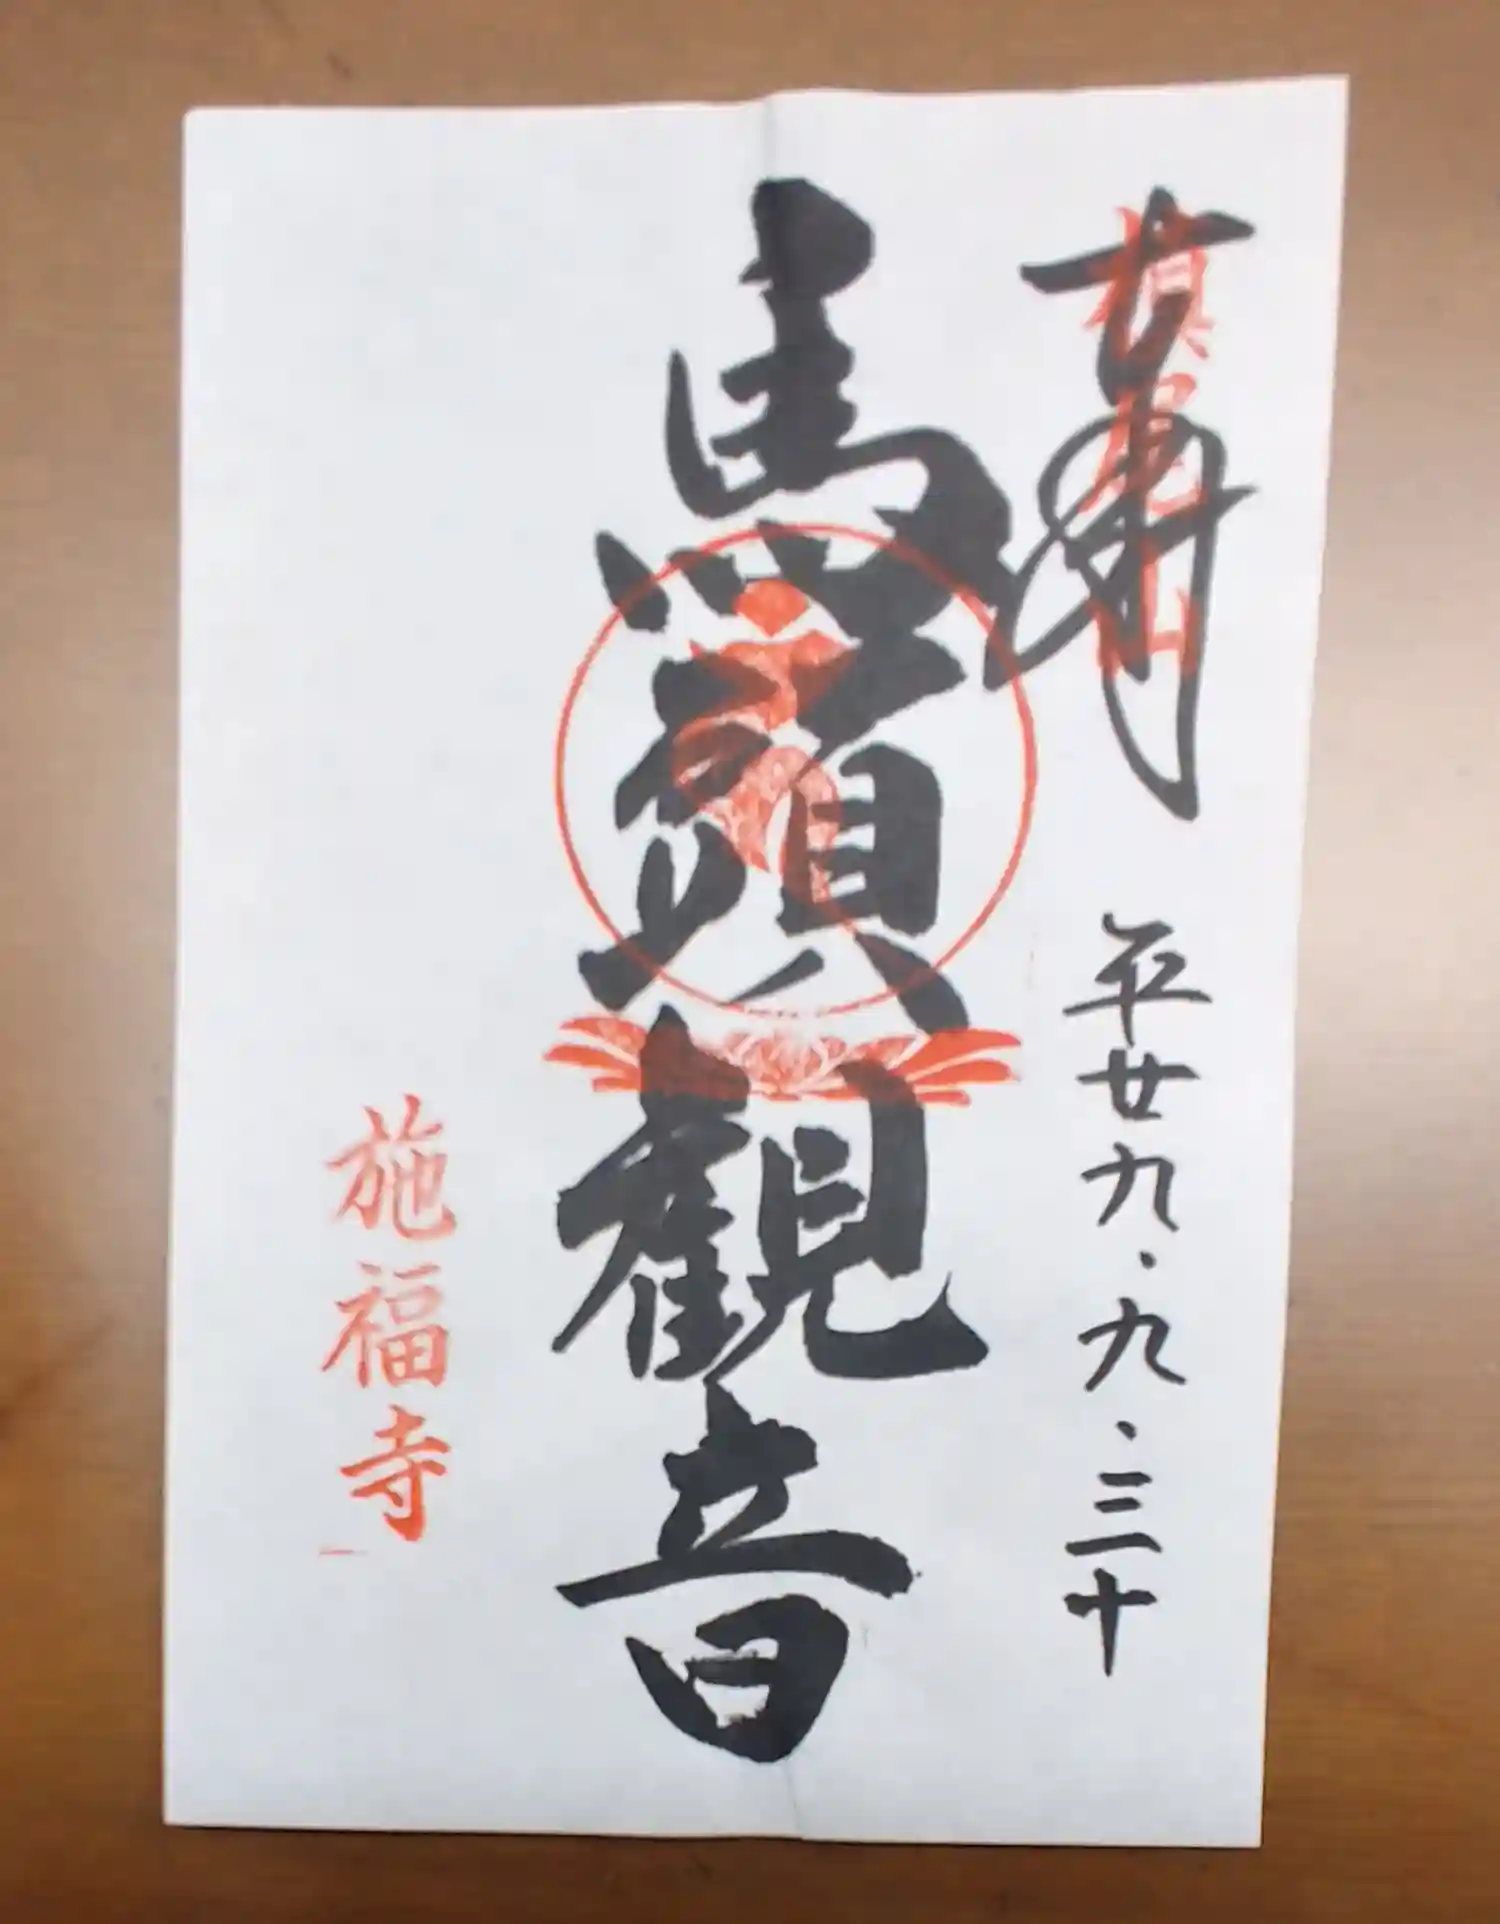 奉拝
槇尾山
平廿九.九.三十
馬頭観音
施福寺